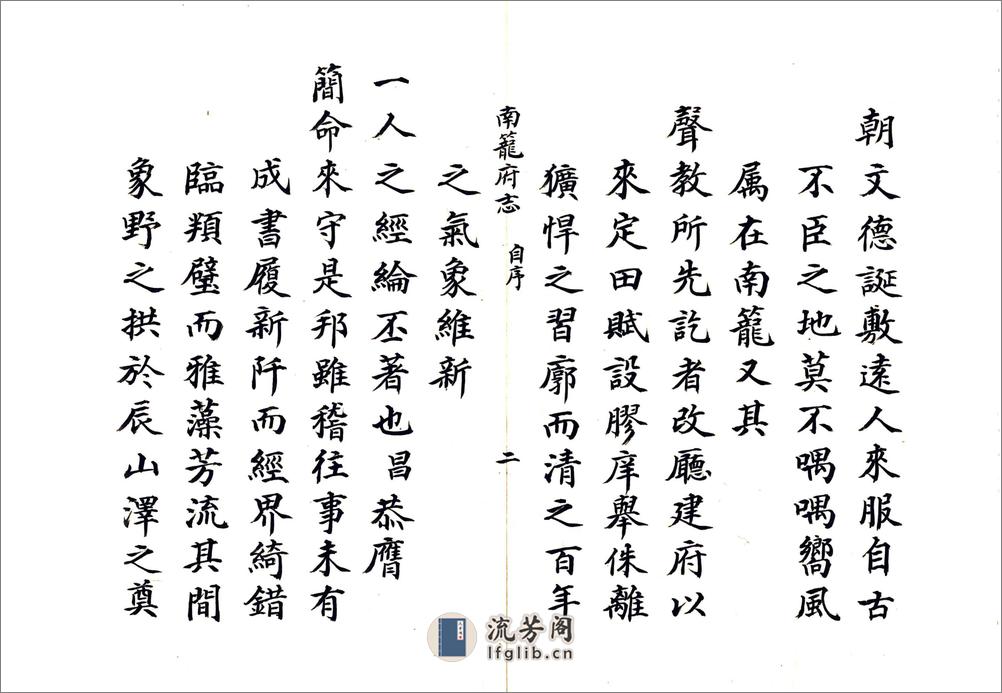 朝文德誕敷遠人來服自古
不臣之地莫不喁喁嚮風
属在南籠又其
聲教所先訖者改廳建府以
來定田賦設膠庠舉侏離
獷悍之習廓而清之百年
南籠府志 自序 二
之氣象維新
一人之經綸丕著也昌恭膺
簡命來守是邦雖稽往事未有
成書履新阡而經界綺錯
臨頖璧而雅藻芳流其間
象野之拱於辰山澤之奠
流芳阁
lfglib.cn